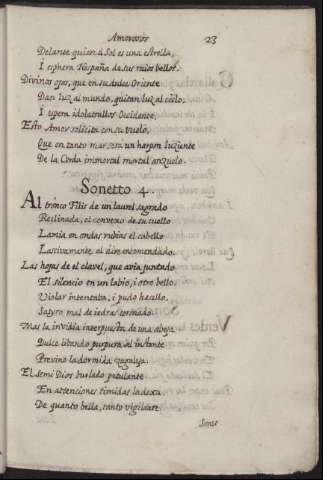 Amorosos 23
Delante quien el Sol es una estrella,
I esphera España de sus raios bellos.
Divinos ojos, que en su dulce Oriente
Dan luz al mundo, quitan luz al cielo,
I espera idolatrallos Occidente.
Esto Amor solicita con su vuelo,
Que en tanto mar sera un harpon luziente
De la Cerda inmortal mortal anzuelo.
Sonetto 4.
Al tronco Filis de un laurel sagrado
Reclinada, el convexo de su cuello
Lamia en ondas rubias el cabello
Lascivamente al aire encomendado.
Las hojas de el clavel, que avia juntado
El silencio en un labio, i otro bello.
Violar intentaba, i pudo hacello
Satyro mal de iedras coronado.
Mas la invidia interpuesta de una abeja
Dulce libando purpura al instante
Previno la dormida zagaleja.
El semi Dios burlado petulante
En attenciones timidas la dexa
De quanto bella, tanto vigilante